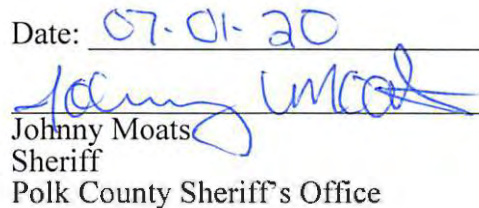 Date: 07-01-20
Johnny Moats
Johnny Moats
Sheriff
Polk County Sheriff's Office